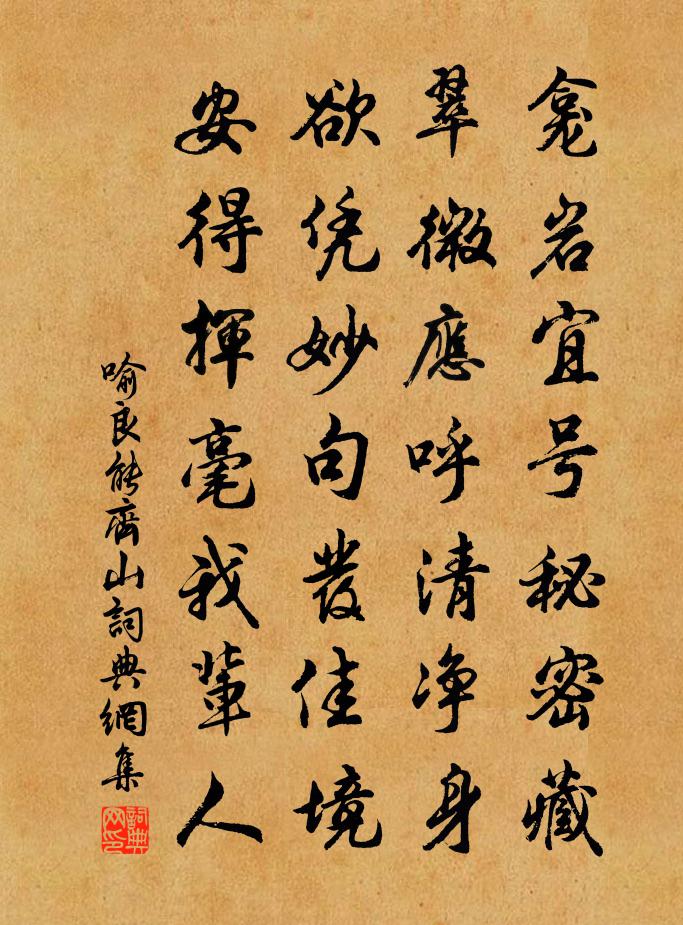 龛岩宜号秘密藏
翠微應呼清净身
欲凭妙句發佳境
安得揮毫我輩人
喻良能齊山詞典網集
詞典网印